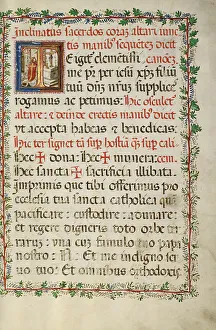 Inclinatus sacerdos coraz altari iunc
tis manibꝰ sequētez dicit
E igit̃ clemētissi canōez
me pr̃ per iesū xp̄z filiū
tuū dn̄z nr̄z supplice
rogamus ac petimus: Hic osculet̃
altare: ⁊ deinde erectis manibꝰ dicit
ut accepta habeas ⁊ benedicas
Hic ter signet ɱ sup̄ hostiā q̄z sup̄ cali
hec ✠ dona: Hec ✠ munera: cem
hec sancta ✠ sacrificia illibata.
imprimis que tibi offerimus pro
ecclesia tua sancta catholica quā
pacificare: custodire: adunare:
et regere digneris toto orbe ter
rarum: vna cum famulo tuo papa
nostro N: Et me indigno ser
uo tuo: Et omnibus orthodoxis